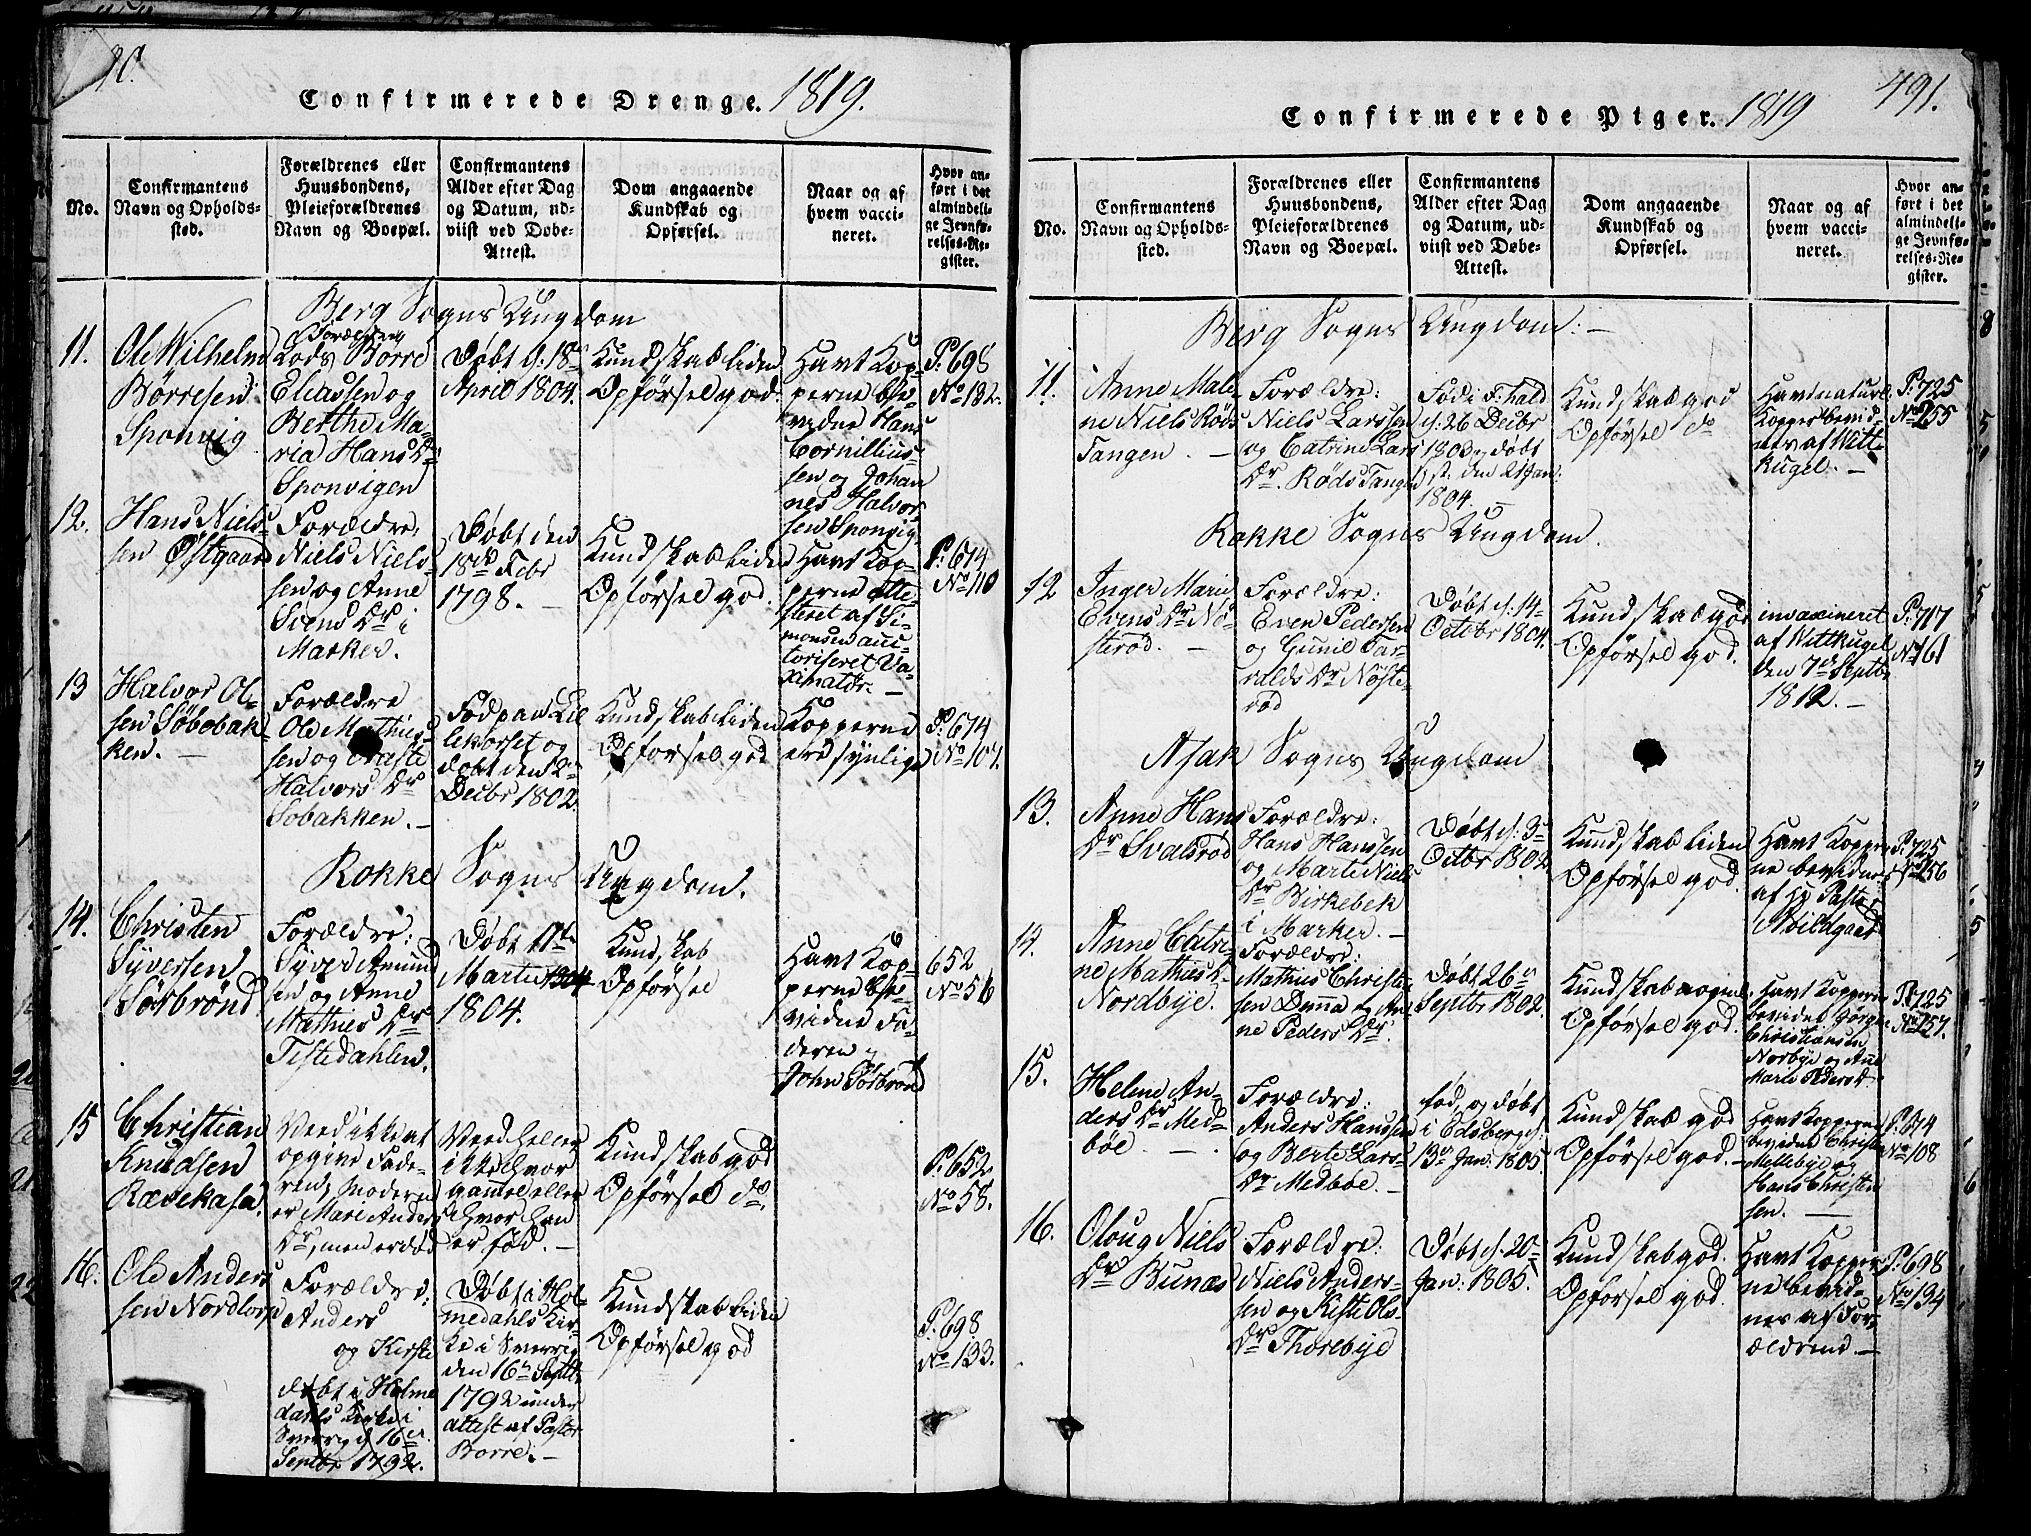 Confirmerede Drenge. 1819.
No.
Confirmantens
Navn og Opholds-
sted.
Forældrenes eller
Huusbondens,
Pleieforældrenes
Navn og Boepæl.
Confirmantens
Alder efter Dag
og Datum, ud-
viist ved Døbe-
Attest.
Dom angaaende
Kundskab og
Opførsel.
Naar og af
hvem vacci-
neret.
Hvor an-
ført i det
almindeli-
ge Jevnfø-
relses-Re-
gister.
Berg Sogns Ungdom
11.
Ole Wilhelm
Börresen
Sponvig
Forældrene
Lods Borre
Eliassen og
Berthe Ma-
ria Hans Dr
Sponvigen
Döbt d: 18de
April 1804.
Kundskab liden
Opförsel god
Havt Kop-
perne be-
vidne Hans
Cornillius-
sen og Johan
nes Halvor-
sen Sponvig
P: 698
No 132.
12.
Hans Niels-
sen Østgaard
Forældre:
Niels Niels-
sen og Anne
Svends Dr i
Marker.
Döbt den
18de Febr
1798. –
Kundskab liden
Opförsel god.
Havt Kop-
perne atte-
steret af Si-
monsen auc-
toriseret Va-
xinatør. –
P: 674
No 110
13
Halvor Ol-
sen Söbobak-
ken. –
Forældre
Ole Mathies-
sen og
Halvors Dr
Sobakken. –
Föd paa Lil
lekorset og
döbt den 2den
Decbr 1802
Kundskab liden
Opförsel god
Kopperne
ere synlige
P: 674
No 107.
Rokke Sogns Ungdom.
14.
Christen
Syversen
Törbrönd
Forældre:
Syver Amund
sen og Anne
Mathies Dr
Tistedahlen.
Döbt 11te
Martii 1804
1804.
Kundskab
Opförsel
Havt Kop-
perne be-
vidne Fa-
deren og
John Törbrönd
652
No 56
15
Christian
Knudsen
Rævekasa.
Veed ikke at
opgive Fade-
ren, Moderen
er Mari Anders
Dr, men er död
Veed heller
ikke hvor
gamel eller
hvor han
er föd. –
Kundskab god
Opförsel do.
P: 652
No 58.
16.
Ole Anders
sen Nordtorp
Forældre:
Anders
og Kirsti
döbt i Holme
dahls Kirke i
Sverrig d 16de
Septbr 1792.
Döbt i Hol-
medahls Kir-
ke i Sverrig
den 16de Septbr
1792 under
attest af Pastor
Borre. –
Kundskab liden
Opförsel god
P: 698
No 133.
Confirmerede Piger. 1819
491.
No.
Confirmantens
Navn og Opholds-
sted.
Forældrenes eller
Huusbondens,
Pleieforældrenes
Navn og Boepæl.
Confirmantens
Alder efter Dag
og Datum, ud-
viist ved Døbe-
Attest.
Dom angaaende
Kundskab og
Opførsel.
Naar og af
hvem vacci-
neret.
Hvor an-
ført i det
almindeli-
ge Jevnfø-
relses-Re-
gister.
Berg Sogns Ungdom: –
11.
Anne Male-
ne Niels Röds
Tangen –
Forældre:
Niels Larssen
og Catrine Lars
Dr. Röds Tangen
Föd i F: hald
d: 26 Decbr
1803 og döbt
st. den 2 Jan:
1804. –
Kundskab god
Opförsel do
Havt naturl.
Kopper bevid-
nes af Witt-
kugel. –
P: 725
No 255
Rokke Sogns Ungdom.
12
Inger Marie
Evens Dr Nö-
steröd. –
Forældre:
Even Pedersen
og Gunil Tar-
alds Dr Nöste-
röd
Döbt d: 14de
Octbr 1804.
Kundskab god
Opförsel god.
invaxineret
af Wittkugel
den 7de Septbr
1812. –
P: 717
No 161
Asak Sogns Ungdom
13.
Anne Hans
Dr Svalröd
Forældre:
Hans Hanssen
og Marte Niels
Dr Birkebek
i Marker. –
Döbt d: 3de
Octbr 1802
Kundskab liden
Opförsel god.
Havt Kopper
ne bevidnes
af Hr Pastor
Abildgaard
P: 725
No 256
14.
Anne Catri-
ne Mathies Dr
Nordbye.
Forældre:
Mathius Christen
sen og An-
ne Peders Dr.
Döbt 26de
Septbr 1802.
Kundskab nogen
Opförsel god.
Havt Kopperne
bevidnet Jörgen
Christiansen
Norbye og Anne
Marie Peders Dr
P: 725
No 257.
15.
Helene An-
ders Dr Med-
böe. –
Forældre:
Anders Hanssen
og Berte Lars
Dr Medböe. –
föd, og döbt
i Edsberg d:
13de Jan: 1805.
Kundskab god
Opförsel god. –
Havt Kopperne
bevidnet Christen
Mellebye og
Hans Christen
sen. –
P: 674
No 108
16.
Oloug Niels
Dr Bunæs
Forældre:
Niels Anders-
sen og Kisti Ols
Dr Thorebye
Döbt d: 20de
Jan: 1805.
Kundskab god.
Opförsel god.
Havt Kopper
ne bevid-
nes af For-
ældrene. –
P: 698
No 134